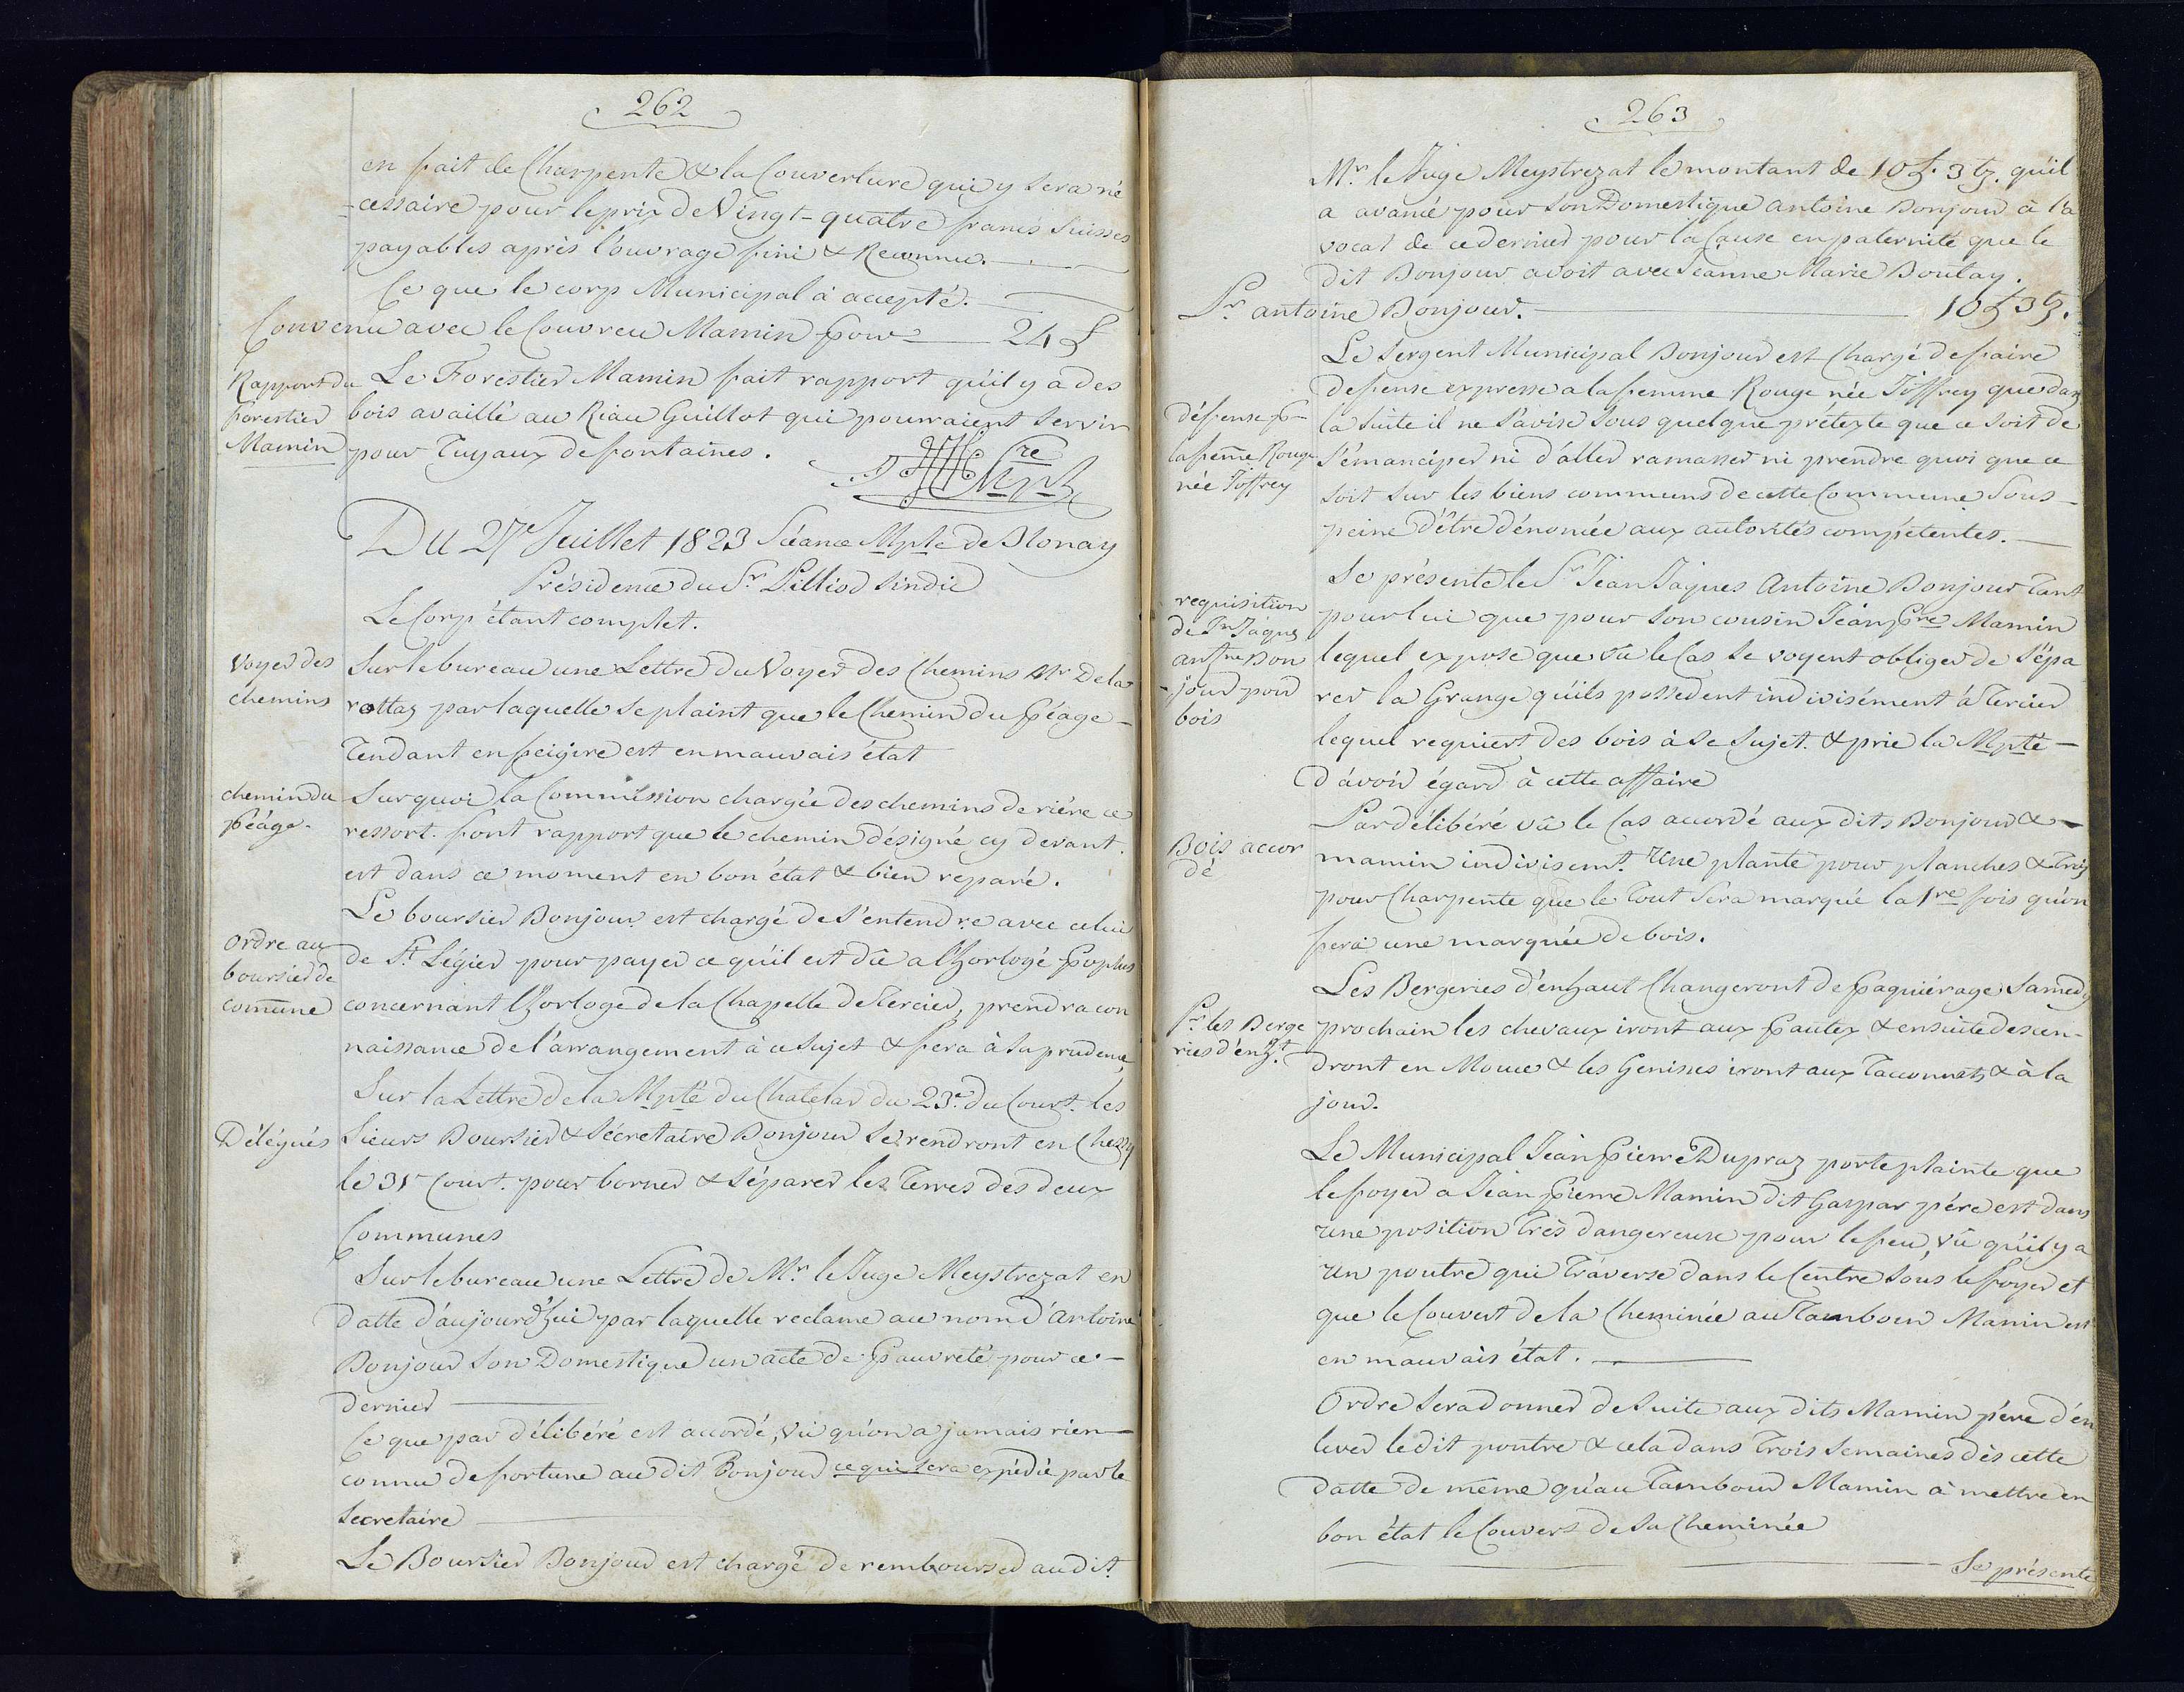 262
en fait de Charpente & la Couverture qui y sera né
=cessaire pour le prix de Vingt-quatre francs Suisses
payables après l'ouvrage fini & Reconnu.
Ce que le corp Municipal à accepté.
Convenu avec le Couvreu Mamin pour 24 £
Rapport du
forestier
Mamin
Le Forestier Mamin fait rapport qu'il y a des
bois availlé au Riau Guillot qui pourraient servir
pour Tuyaux de fontaines.
Du 27e Juillet 1823 Séance Mple de Blonay
Présidence du Sr. Pilliod Sindic
Le Corp étant complet.
Voyer des
chemins
Sur le bureau une Lettre du Voyer des Chemins Mr Dela
rottaz par laquelle se plaint que le Chemin du Péage
Tendant en feigire est en mauvais état
chemin du
péage.
Surquoi la Commission chargée des chemins de riére ce
ressort. font rapport que le chemin désigné cy devant.
est dans ce moment en bon état & bien reparé.
Ordre au
boursier de
comune
Le boursier Bonjour est chargé de s'entendre avec celui
de St. Légier pour payer ce qu'il est dû a l'horlogé
concernant l'horloge de la Chapelle de Tercier, prendra con
naissance de l'arrangement à ce sujet & fera à sa prudence,
Sur la Lettre de la Mpté du Chatelar du 23e. du Court. les
Délégués
Sieurs Boursier & Sécretaire Bonjour se rendront en Chessy
le 31e Court. pour borner & séparer les Terres des deux
Communes
Sur le bureau une Lettre de Mr. le Juge Meystrezat en
datte d'aujourd'hui par laquelle reclame au nom d'Antoine
Bonjour son Domestique un acte de Pauvreté pour ce
dernier
Ce que par délibéré est accordé, vû qu'on a jamais rien
connu de fortune au dit Bonjour ce qui sera expédié par le
Secretaire
Le Boursier Bonjour est chargé de rembourser au dit.
263
Mr. le Juge Meystrezat le montant de 10 £. 3 bz. qu'il
a avancé pour son Domestique antoine Bonjour à l'a
vocat de ce dernier pour la Cause en paternité que le
dit Bonjour avoit avec Jeanne Marie Boulay.
Pr. antoine Bonjour. 10 £ 3 bz.
défense pr
la feme Rouge
née Joffrey
Le Sergent Municipal Bonjour est Chargé de faire
defense expresse a la femme Rouge née Joffrey que dans
la suite il ne s'avise sous quelque prétexte que ce soit de
s'émanciper ni d'aller ramasser ni prendre quoi que ce
soit sur les biens communs de cette Commune sous
peine d'être dénoncée aux autorités compétentes.
requisition
de Jn Jaques
antne Bon
-jour pour
bois
Se présente le Sr Jean Jaques Antoine Bonjour tant
pour lui que pour son cousin Jean Pre Mamin
lequel expose que vû le Cas se voyent obliger de sépa
rer la Grange qu'ils possedent indivisément à Tercier
lequel requiert des bois à se sujet. & prie la Mpté
d'avoir égard à cette affaire
Bois accor
dé
Par délibéré vû le Cas accordé aux dits Bonjour &
mamin indivisemt. Une plante pour planches & Trois
pour Charpente que le tout sera marqué la 1re fois qu'on
fera une marquée de bois.
Pr. les Berge
ries d'enht.
Les Bergeries d'enhaut Changeront de Paquiérage Samedy
prochain les chevaux iront aux Pautex & ensuite descen-
dront en Mouce & les Genisses iront aux Tacconnets & à la
jour.
Le Municipal Jean Pierre Dupraz porte plainte que
le foyer a Jean Pierre Mamin dit Gaspar père est dans
une position très dangereuse pour le feu, vû qu'il y a
un poutre qui traverse dans le Centre sous le foyer et
que le Couvert de la Cheminée au Tambour Mamin est
en mauvais état.
Ordre sera donner de suite aux dits Mamin père d'en
lever le dit poutre & cela dans trois semaines dès cette
datte de même qu'au Tambour Mamin à mettre en
bon état le Couvers de sa Cheminée
Se présente